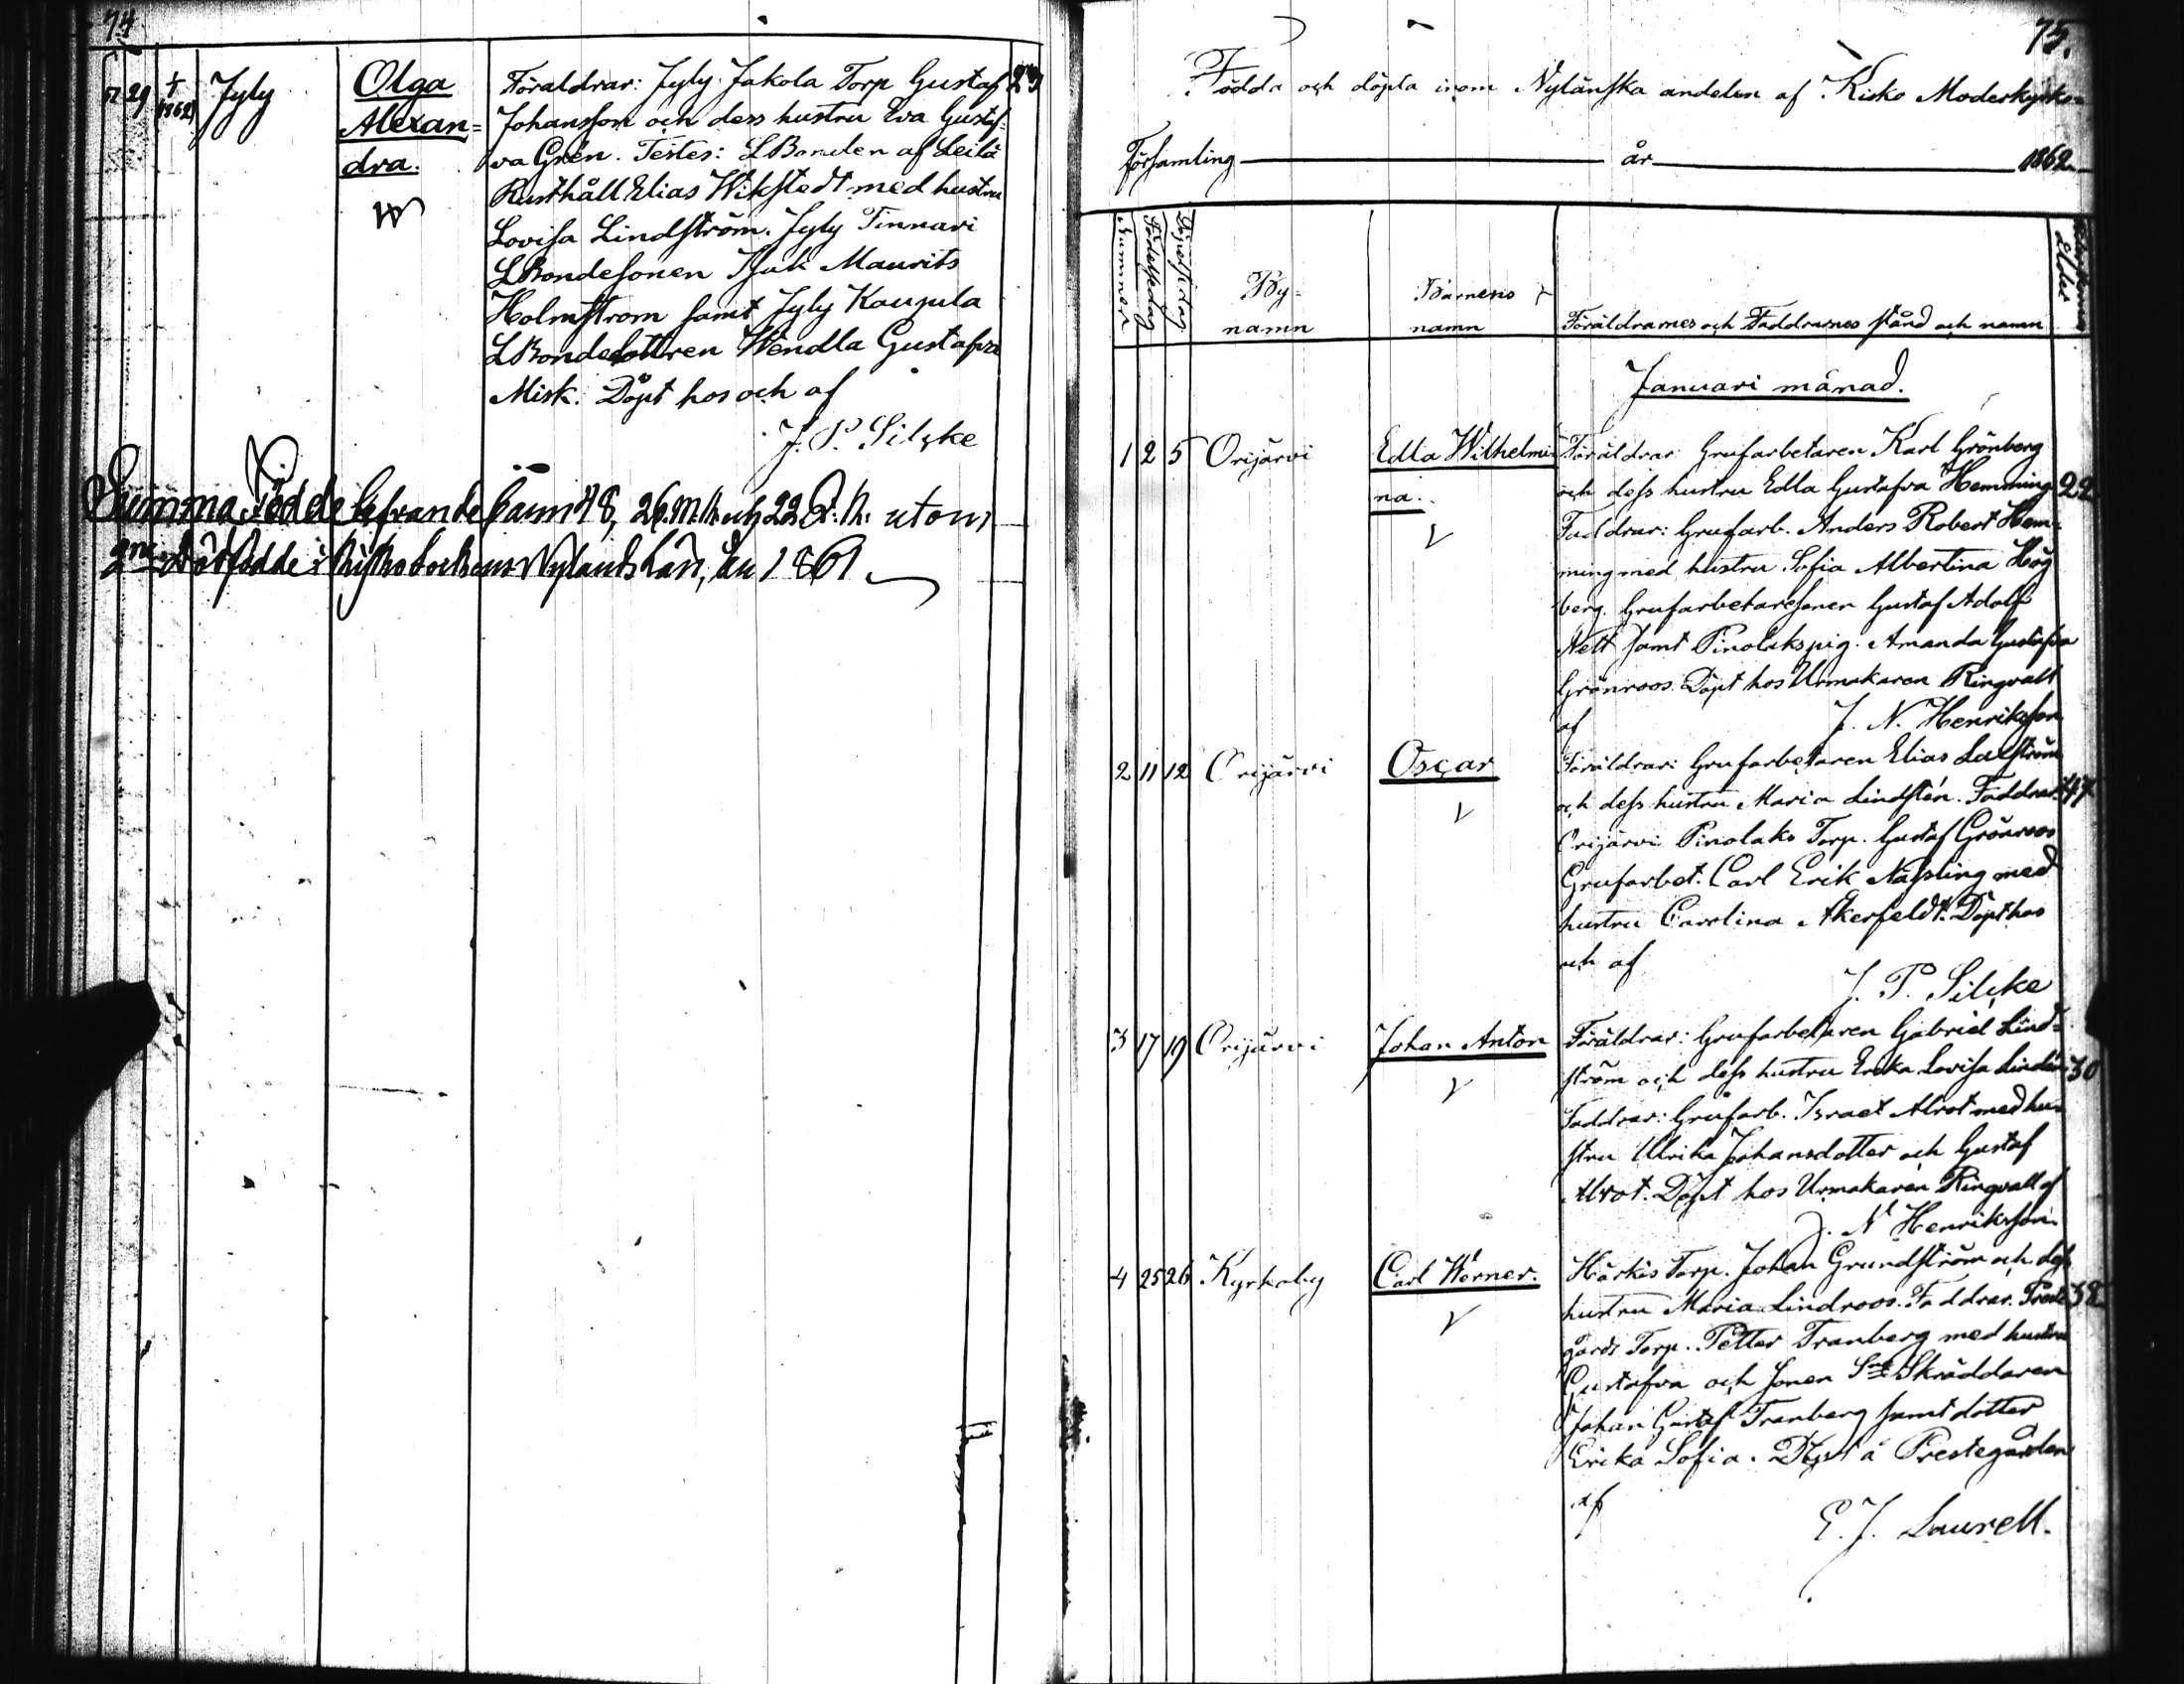 74.
29 1/4 1862 Jyly Olga Föräldrar: Jyly Jakola Torp Gustaf
Alexan= Johansson och dess hustru Eva Gustaf=
dra. va Grén. Testes: LBonden af Leilä
Rusthåll Elias Wikstedt med hustru
Lovisa Lindström. Jyly Tinnari
LBondesonen Isak Maurits
Holmström samt Jyly Kaupula
LBondedottren Wendla Gustafva
Misk. Döpt hos och af
J. P. Silcke
Summa Födde lefvande barn 48, 26 M.K. och 22 Q.K. utom
2ne Dödfödde i Kisko Sockens Nylands Län, år 1861
75.
Födda och döpta inom Nyländska andelen af Kisko Moderkyrko=
Församling år 1862
Nummer Födelsedag Döpelsedag By=namn Barnens namn Föräldrarnes och Faddrarnes stånd och namn ålder
Januari månad.
1 2 5 Orijärvi Edla Wilhelmi= Föräldrar: Grufarbetaren Karl Grönberg
na. och dess hustru Edla Gustafva Hemming 22
Faddrar: Grufarb. Anders Robert Hem=
ming med hustru Sofia Albertina Hög
berg. Grufarbetaresonen Gustaf Adolf
Nett samt Pinolakspig. Amanda Gustafva
Grönroos. Döpt hos Urmakaren Ringvall
af J. N. Henriksson
2 11 12 Orijärvi Oscar Föräldrar: Grufarbetaren Elias Laxström
och dess hustru Maria Lindstén. Faddrar: 47
Orijärvi Pinolaks Torp. Gustaf Grönroos
Grufarbet. Carl Erik Nässling med
hustru Carolina Åkerfeldt. Döpt hos
och af
J. P. Silcke
3 17 19 Orijärvi Johan Anton Föräldrar: Grufarbetaren Gabriel Lind=
ström och dess hustru Erika Lovisa Lindén 30
Faddrar: Grufarb. Israel Alrot med hu=
stru Ulrika Johansdotter och Gustaf
Alrot. Döpt hos Urmakaren Ringvall af
J. N. Henriksson
4 25 26 Kyrkoby Carl Werner. Härkis Torp. Johan Grundström och dess
hustru Maria Lindroos. Faddrar. Preste 32
gårds Torp. Petter Tranberg med hustru
Gustafva och sonen Skräddaren
Johan Gustaf Tranberg samt dotter
Erika Sofia. Döpt å Prestegården
af
E. J. Laurell.